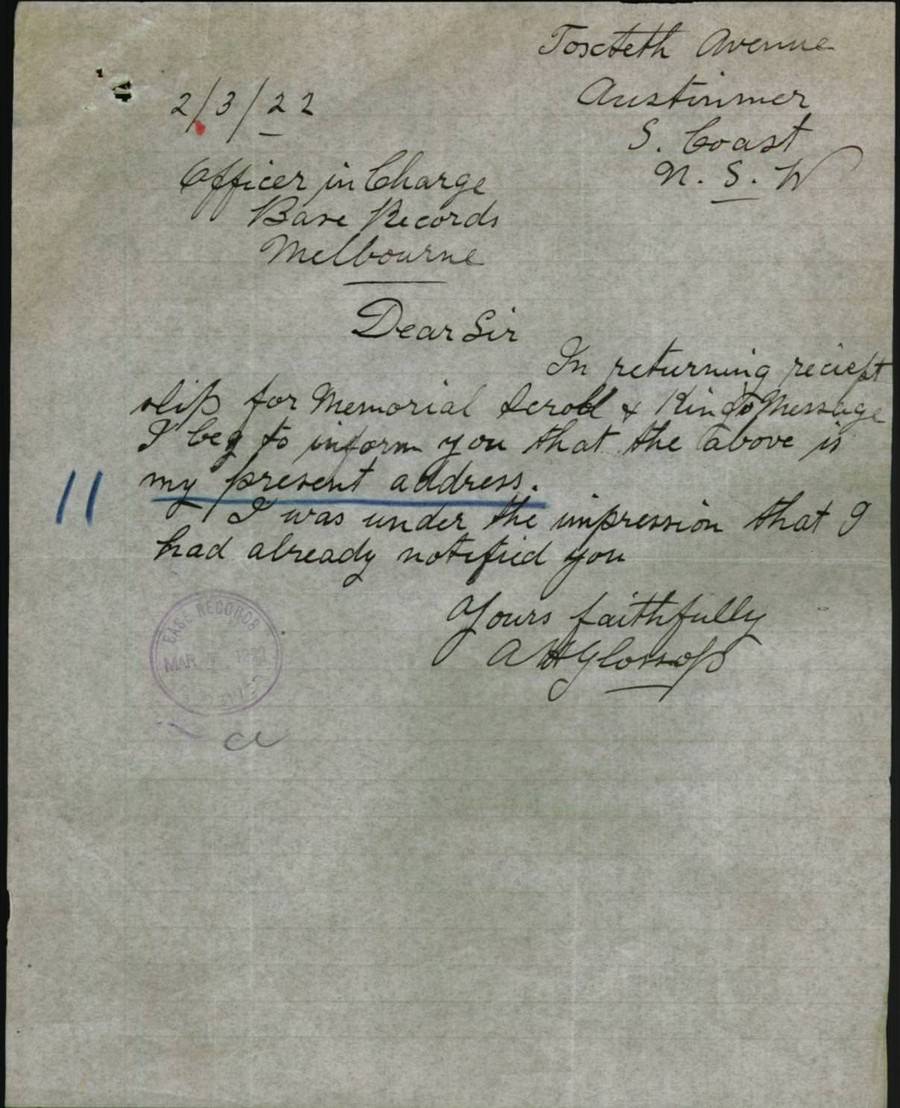 Toxteth Avenue
Austinmer
S. Coast
N. S. W
2/3/22
Officer in Charge
Base Records
Melbourne
Dear Sir
In returning reciept
slip for Memorial Scroll & King's Message
I beg to inform you that the above is
my present address.
I was under the impression that I
had already notified you
Yours faithfully
A H Glossop
BASE RECORDS
MAR
a